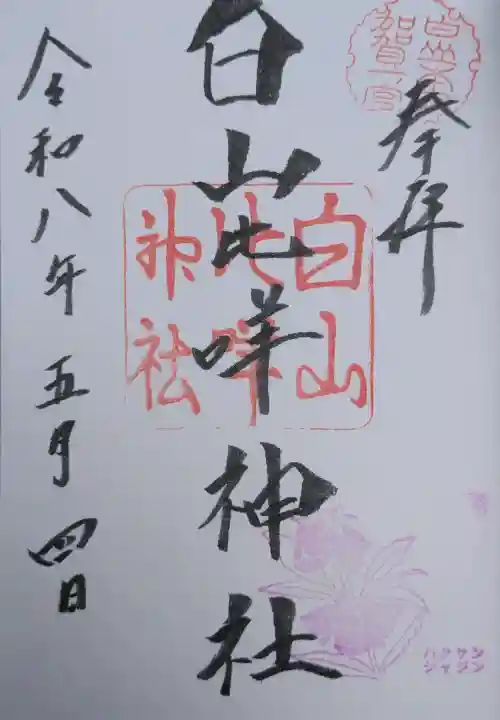 奉拝
白山比咩神社
加賀一宮
白山比咩神社
令和八年五月四日
ハクサン
シャジン